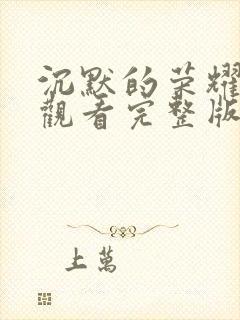 沉默的荣耀
觀看完整版
上萬